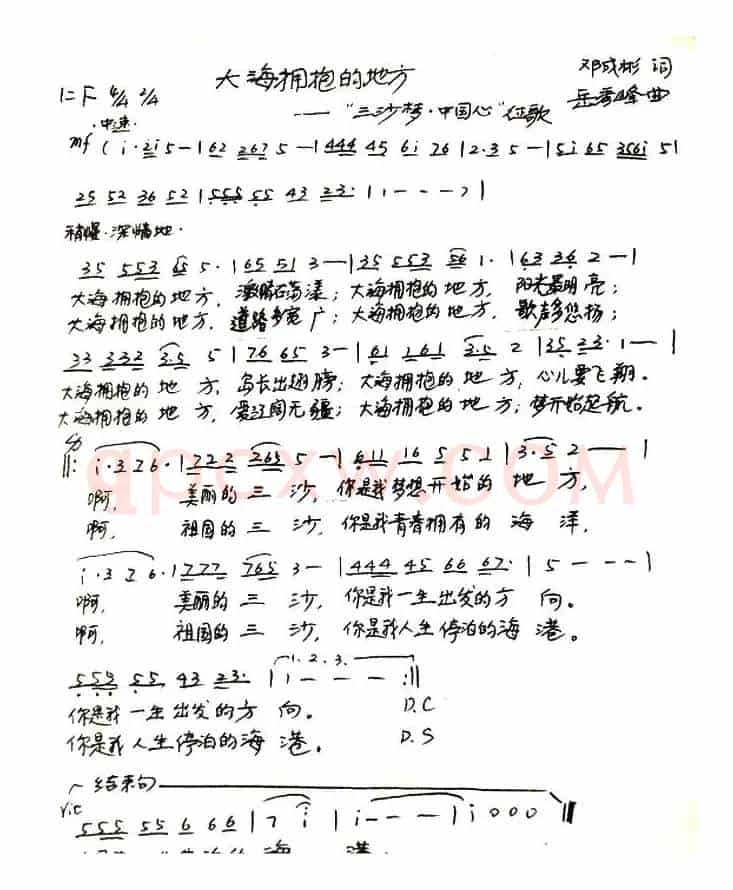 大海拥抱的地方
邓成彬 词
1=F 4/4 2/4
——"三沙梦·中国心"征歌
岳秀峰 曲
中速
mf ( i·2i 5 - | 62 267 5 - | 444 45 6i 76 | 2·3 5 - | 5i 65 356i 5 |
25 52 36 52 | 555 55 43 23· | 1 - - - ) |
稍慢·深情地·
35 553 65 5· | 65 51 3 - | 35 553 56 1· | 63 36 2 - |
大海拥抱的地方, 激情在荡漾; 大海拥抱的地方, 阳光最明亮;
大海拥抱的地方, 道路多宽广; 大海拥抱的地方, 歌声多悠扬;
33 332 3·5 5 | 76 65 3 - | 61 161 3·5 2 | 35 23· 1 - |
大海拥抱的地方, 岛长出翅膀; 大海拥抱的地方, 心儿要飞翔。
大海拥抱的地方, 爱辽阔无疆; 大海拥抱的地方, 梦开始起航。
||: i·3 2 6· | 722 265 5 - | 611 16 5 5 1 | 3·5 2 - - |
啊, 美丽的三沙, 你是我梦想开始的地方,
啊, 祖国的三沙, 你是我青春拥有的海洋,
qpcxw.COM
i·3 2 6· | 777 765 3 - | 444 45 66 67· | 5 - - - |
啊, 美丽的三沙, 你是我一生出发的方向。
啊, 祖国的三沙, 你是我人生停泊的海港。
1. 2. 3.
555 55 43 23· | i - - - :||
你是我一生出发的方向。 D.C
你是我人生停泊的海港。 D.S
结束句
rit
555 55 6 66 | 7 i | i - - - | i 0 0 0 ||